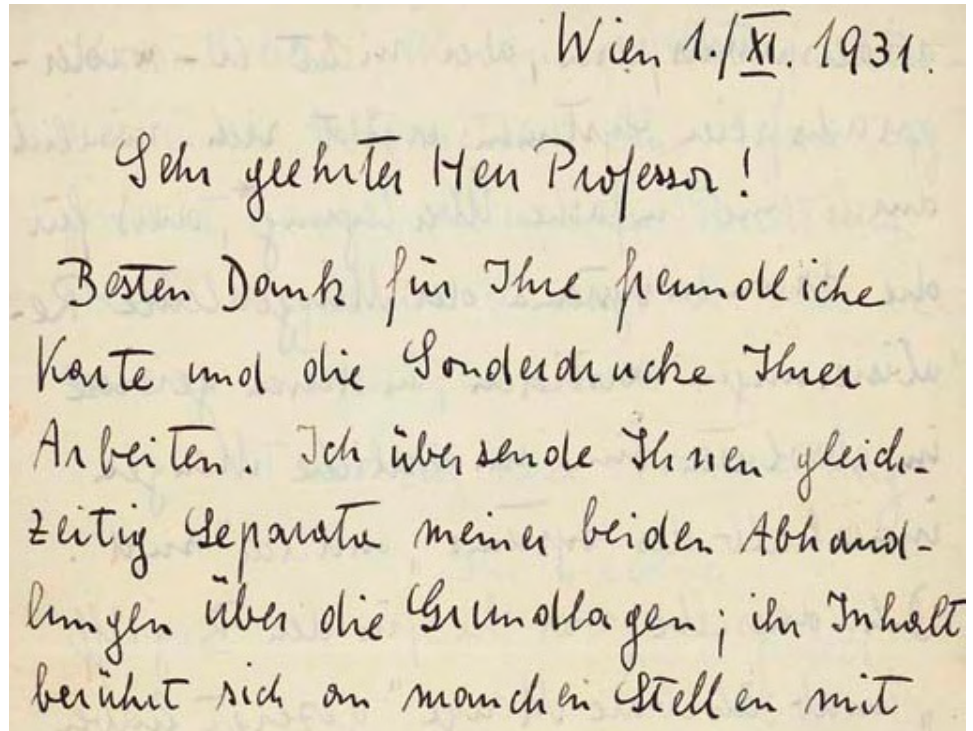 Wien 1./XI. 1931.
Sehr geehrter Herr Professor!
Besten Dank für Ihre freundliche
Karte und die Sonderdrucke Ihrer
Arbeiten. Ich übersende Ihnen gleich-
zeitig Separata meiner beiden Abhand-
lungen über die Grundlagen; ihr Inhalt
berührt sich an manchen Stellen mit